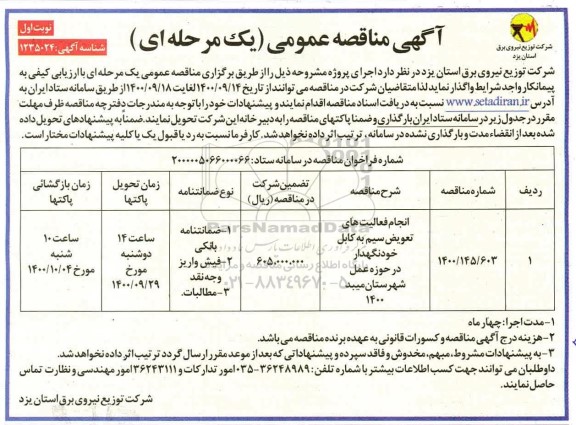 آگهی مناقصه عمومی (یک مرحله ای)
نوبت اول
شناسه آگهی: ۱۲۳۵۰۲۴
شرکت توزیع نیروی برق
استان یزد
شرکت توزیع نیروی برق استان یزد در نظر دارد اجرای پروژه مشروحه ذیل را از طریق برگزاری مناقصه عمومی یک مرحله ای با ارزیابی کیفی به
پیمانکار واجد شرایط واگذار نماید لذا متقاضیان شرکت در مناقصه می توانند از تاریخ ۱۴۰۰/۰۹/۱۴ لغایت ۱۴۰۰/۰۹/۱۸ از طریق سامانه ستاد ایران به
آدرس www.setadiran.ir نسبت به دریافت اسناد مناقصه اقدام نمایند و پیشنهادات خود را با توجه به مندرجات دفترچه مناقصه ظرف مهلت
مقرر در جدول زیر در سامانه ستاد ایران بارگذاری و ضمنا پاکتهای مناقصه را به دبیرخانه این شرکت تحویل نمایند. ضمناً به پیشنهادهای تحویل داده
شده بعد از انقضاء مدت و بارگذاری نشده در سامانه ، ترتیب اثر داده نخواهد شد. کارفرما نسبت به رد یا قبول یک یا کلیه پیشنهادات مختار است.
شماره فراخوان مناقصه در سامانه ستاد: ۲۰۰۰۰۰۵۰۶۶۰۰۰۰۶۶
ردیف
شماره مناقصه
شرح مناقصه
تضمین شرکت
در مناقصه (ریال)
نوع ضمانتنامه
زمان تحویل
پاکتها
زمان بازگشائی
پاکتها
۱
۱۴۰۰/۱۴۵/۶۰۳
انجام فعالیت های
تعویض سیم به کابل
خودنگهدار
در حوزه عمل
شهرستان میبد
۱۴۰۰
۶۰۵,۰۰۰,۰۰۰
۱-ضمانتنامه
بانکی
۲-فیش واریز
وجه نقد
۳-مطالبات.
ساعت ۱۴
دوشنبه
مورخ
۱۴۰۰/۰۹/۲۹
ساعت ۱۰
شنبه
مورخ ۱۴۰۰/۱۰/۰۴
ParsNamadData
۰۲۱-۸۸۳۴۹۶۷۰-۵
۱-مدت اجرا: چهار ماه
۲-هزینه درج آگهی مناقصه و کسورات قانونی به عهده برنده مناقصه می باشد.
۳-به پیشنهادات مشروط، مبهم، مخدوش و فاقد سپرده و پیشنهاداتی که بعد از موعد مقرر ارسال گردد ترتیب اثر داده نخواهد شد.
داوطلبان می توانند جهت کسب اطلاعات بیشتر با شماره تلفن: ۳۶۲۴۸۹۸۹-۰۳۵ امور تدارکات و ۳۶۲۴۳۱۱۱ امور مهندسی و نظارت تماس
حاصل نمایند.
شرکت توزیع نیروی برق استان یزد